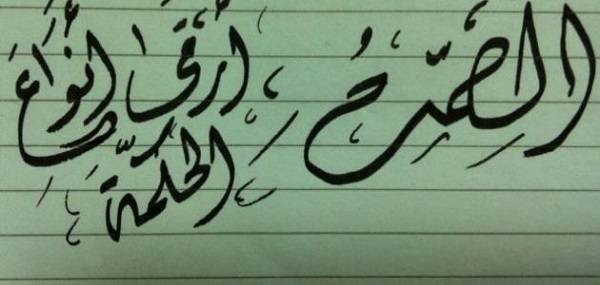 الصّمتُ أرقى أنواع
الحكمة